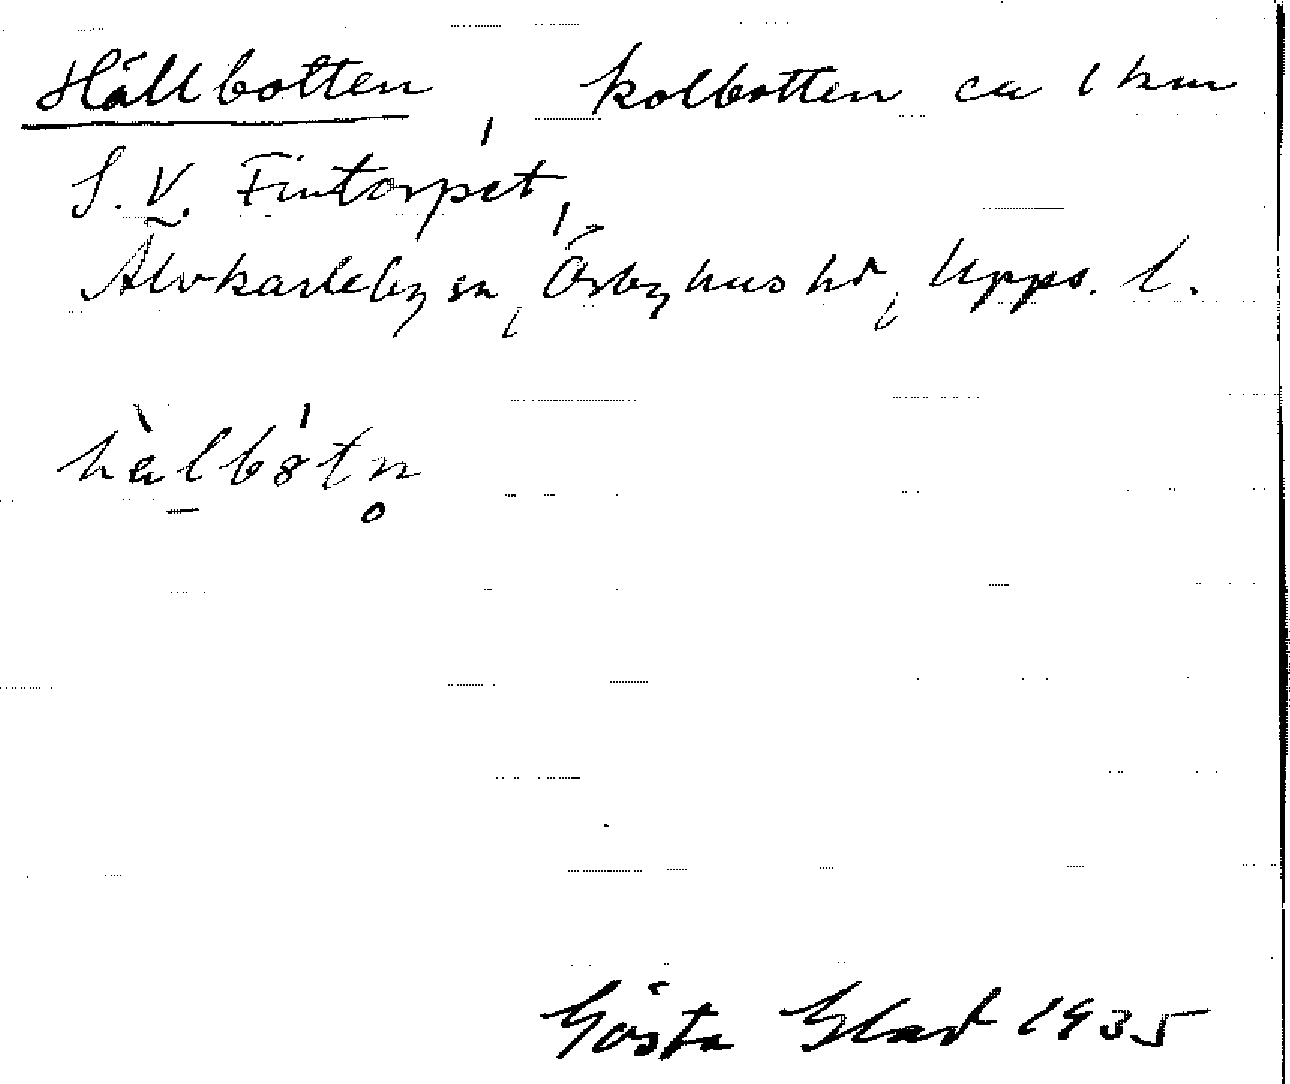 Hällbotten, kolbotten ca 1 km
S.V. Fintorpet,
Älvkarleby sn, Örbyhus hd, Upps. l.
hàlbòtn̥
Gösta Glad 1935